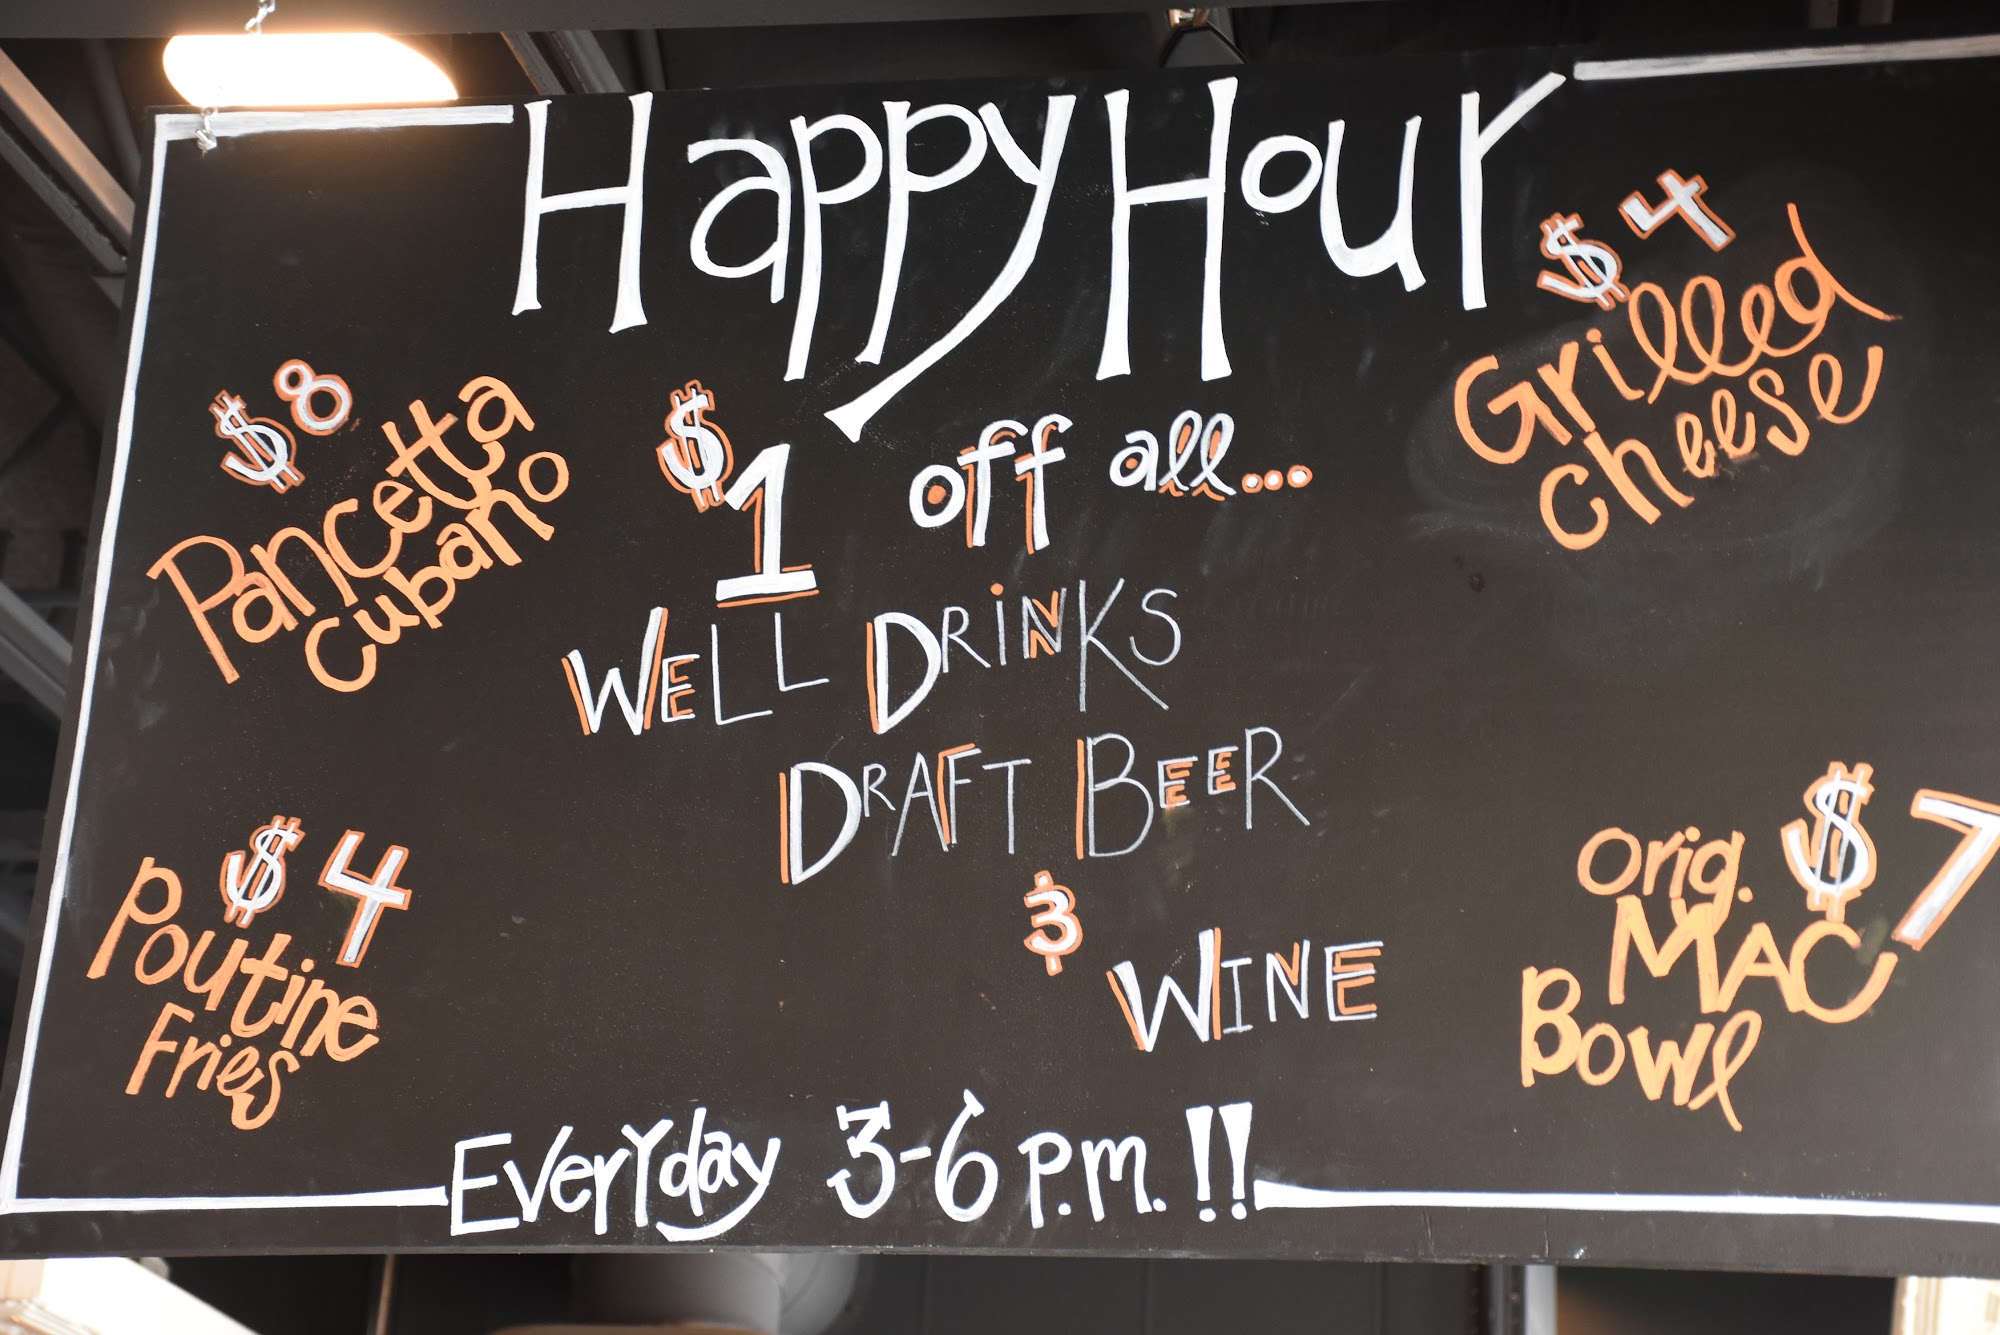 Happy Hour
$8
Pancetta
Cubano
$1 off all...
$4
Grilled
Cheese
Well Drinks
Draft Beer
&
Wine
$4
Poutine
Fries
$7
Orig.
MAC
Bowl
Everyday 3-6 p.m.!!